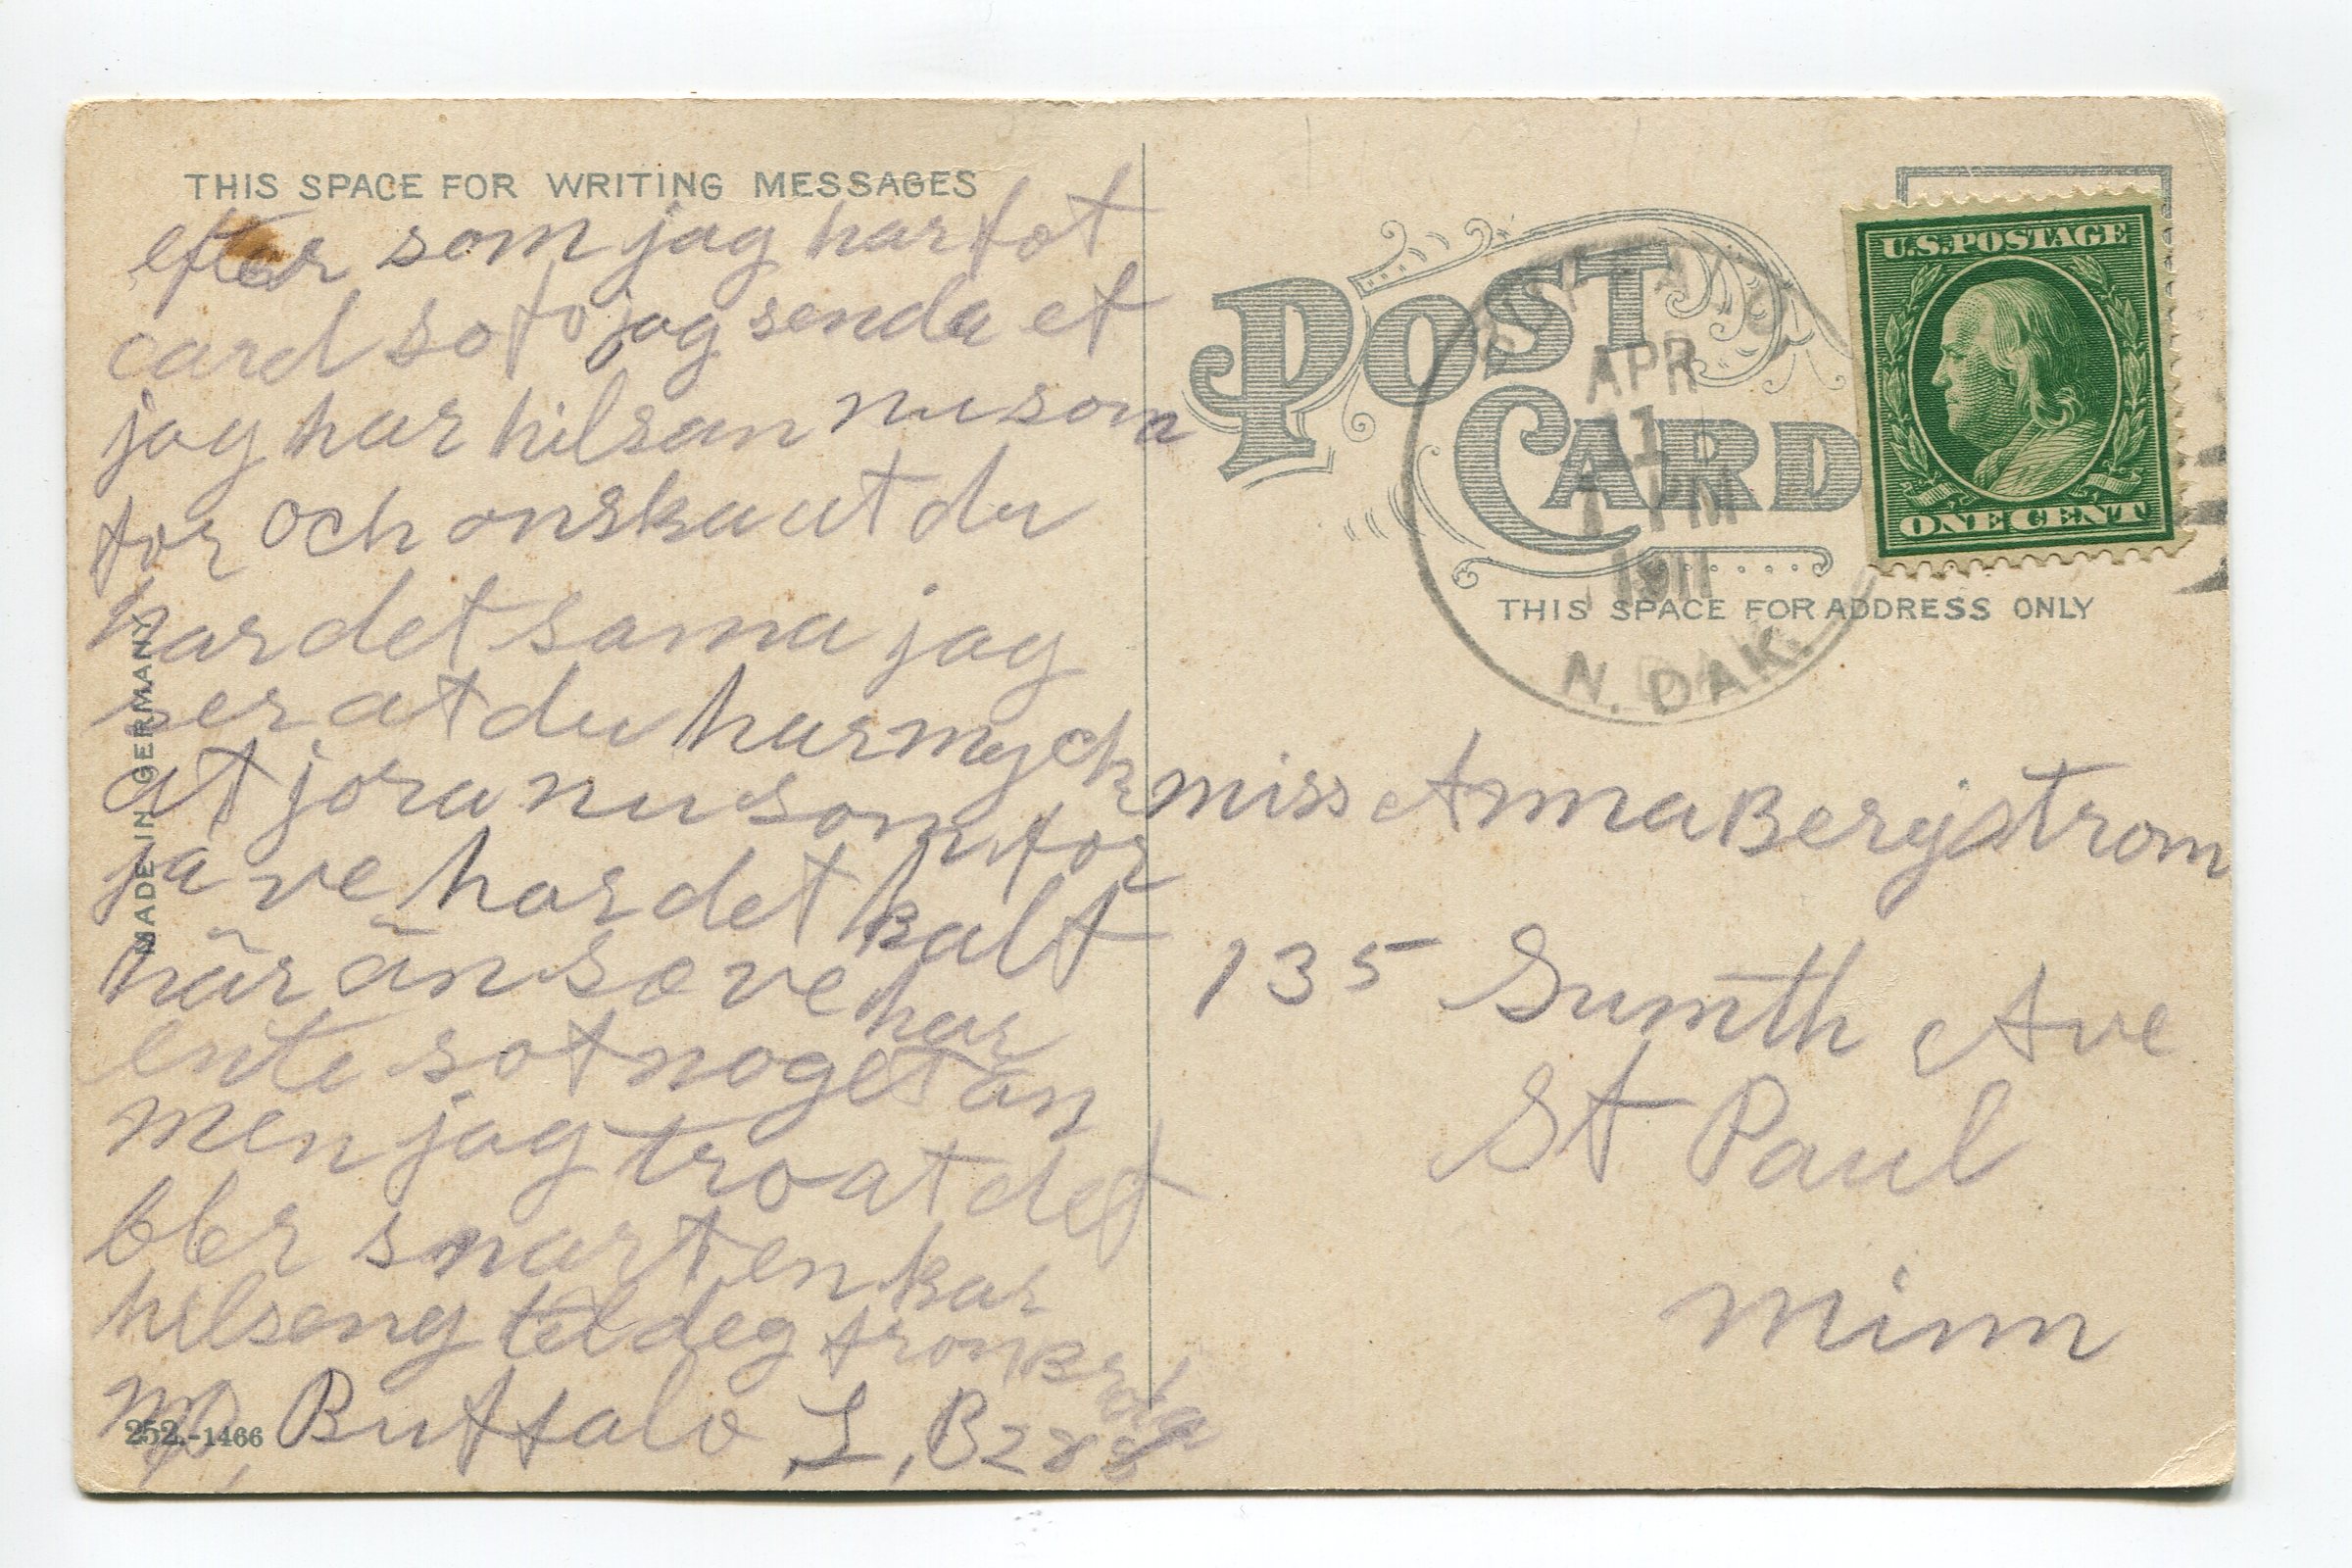 THIS SPACE FOR WRITING MESSAGES
efter som jag har fot
card so fo jag senda et
jag har hilsan nu som
for och onska at du
har det sama jag
ser at du har myck
at jora nu som for
ja ve har det kalt
här än so ve har
ente sot noget än
men jag tro at det
bler snart en kar
helseng tel deg fron
Buffalo
B 288
MADE IN GERMANY
252.-1466
POST CARD
U.S. POSTAGE
ONE CENT
BUFFALO
APR
11
1 PM
1911
N. DAK.
THIS SPACE FOR ADDRESS ONLY
miss Anna Bergstrom
135 Sumth Ave
St Paul
Minn